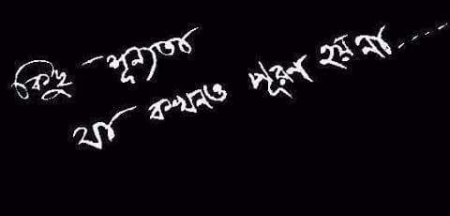 কিছু শূন্যতা
যা কখনও পূরণ হয় না.....